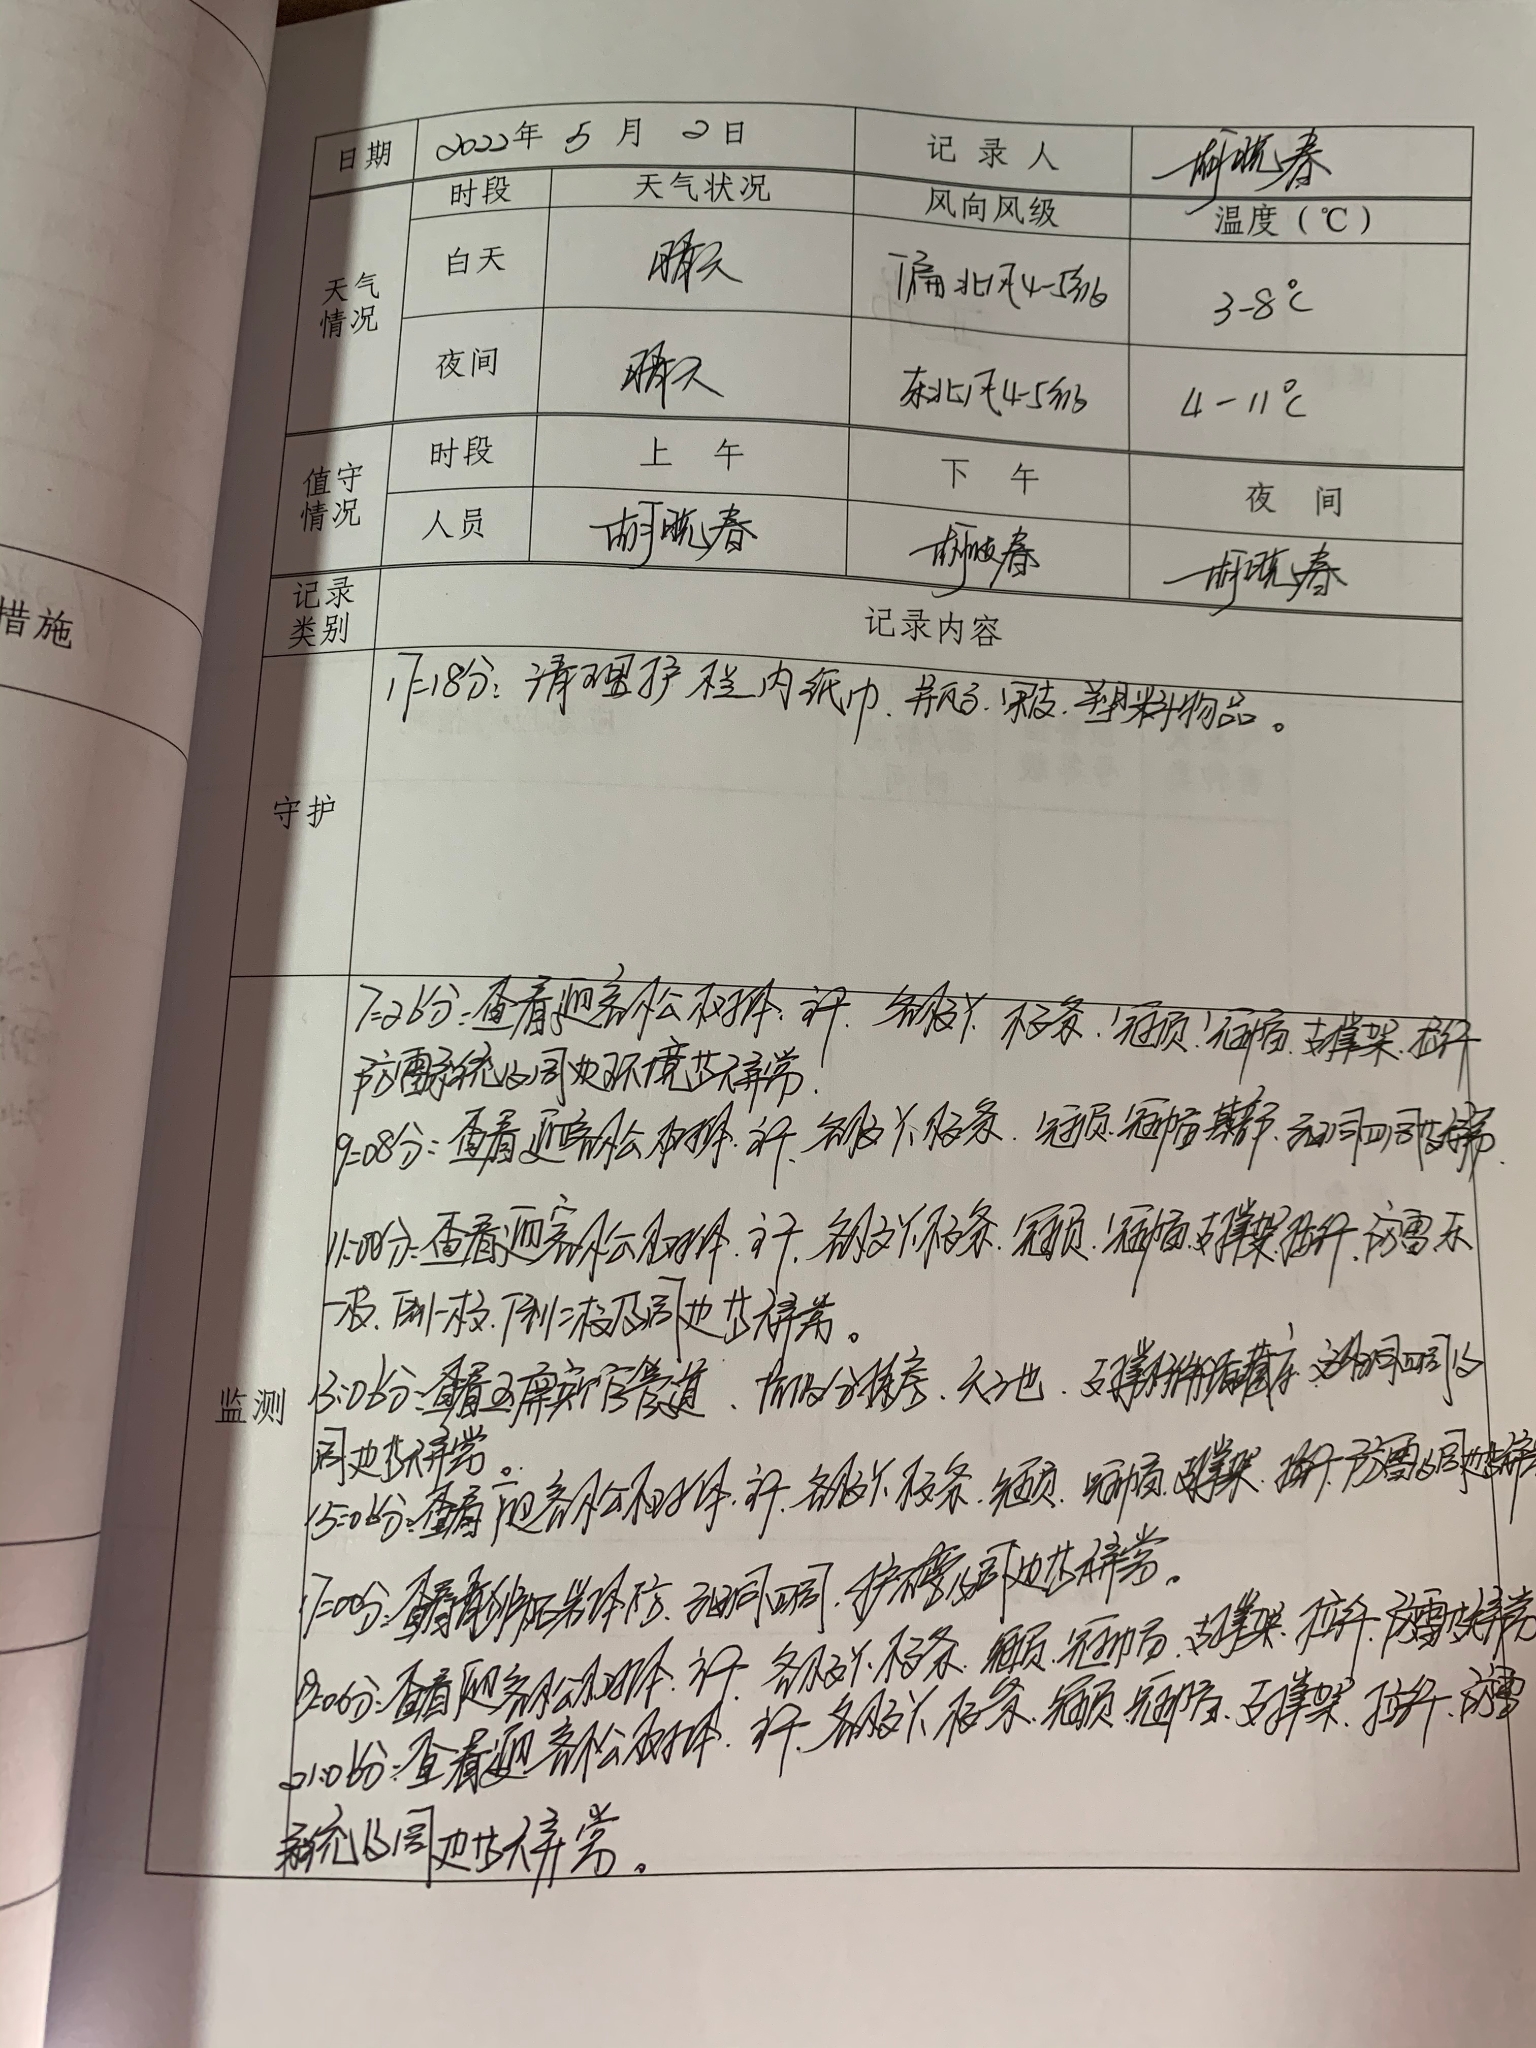 措施
日期 2022年 5 月 2 日 记 录 人 胡晓春
天气情况 时段 天气状况 风向风级 温度（℃）
白天 晴天 偏北风4-5级 3-8℃
夜间 晴天 东北风4-5级 4-11℃
值守情况 时段 上 午 下 午 夜 间
人员 胡晓春 胡晓春 胡晓春
记录类别 记录内容
守护
17:18分：清理护栏内纸巾、瓶子、果皮、塑料物品。
监测
7:26分：查看迎客松树体、主干、各级丫、枝条、冠顶、冠幅、支撑架、拉纤
防雷系统及周边环境皆无异常.
9:08分：查看迎客松树体、主干、各级丫、枝条、冠顶、冠幅、基部、四周皆无异常.
11:00分：查看迎客松树体、主干、各级丫、枝条、冠顶、冠幅、支撑架、拉纤、防雷、东
一枝、西侧一枝、下侧二枝及周边皆无异常。
13:06分：查看玉屏 管道、天池、支撑 四周及
周边皆无异常。
15:06分：查看迎客松树体、主干、各级丫、枝条、冠顶、冠幅、支撑架、拉纤、防雷及周边皆无异常
17:00分：查看 四周、护 及周边皆无异常。
查看迎客松树体、主干、各级丫、枝条、冠顶、冠幅、支撑架、拉纤、防雷皆无异常
21:06分：查看迎客松树体、主干、各级丫、枝条、冠顶、冠幅、支撑架、拉纤、防雷
系统及周边皆无异常。